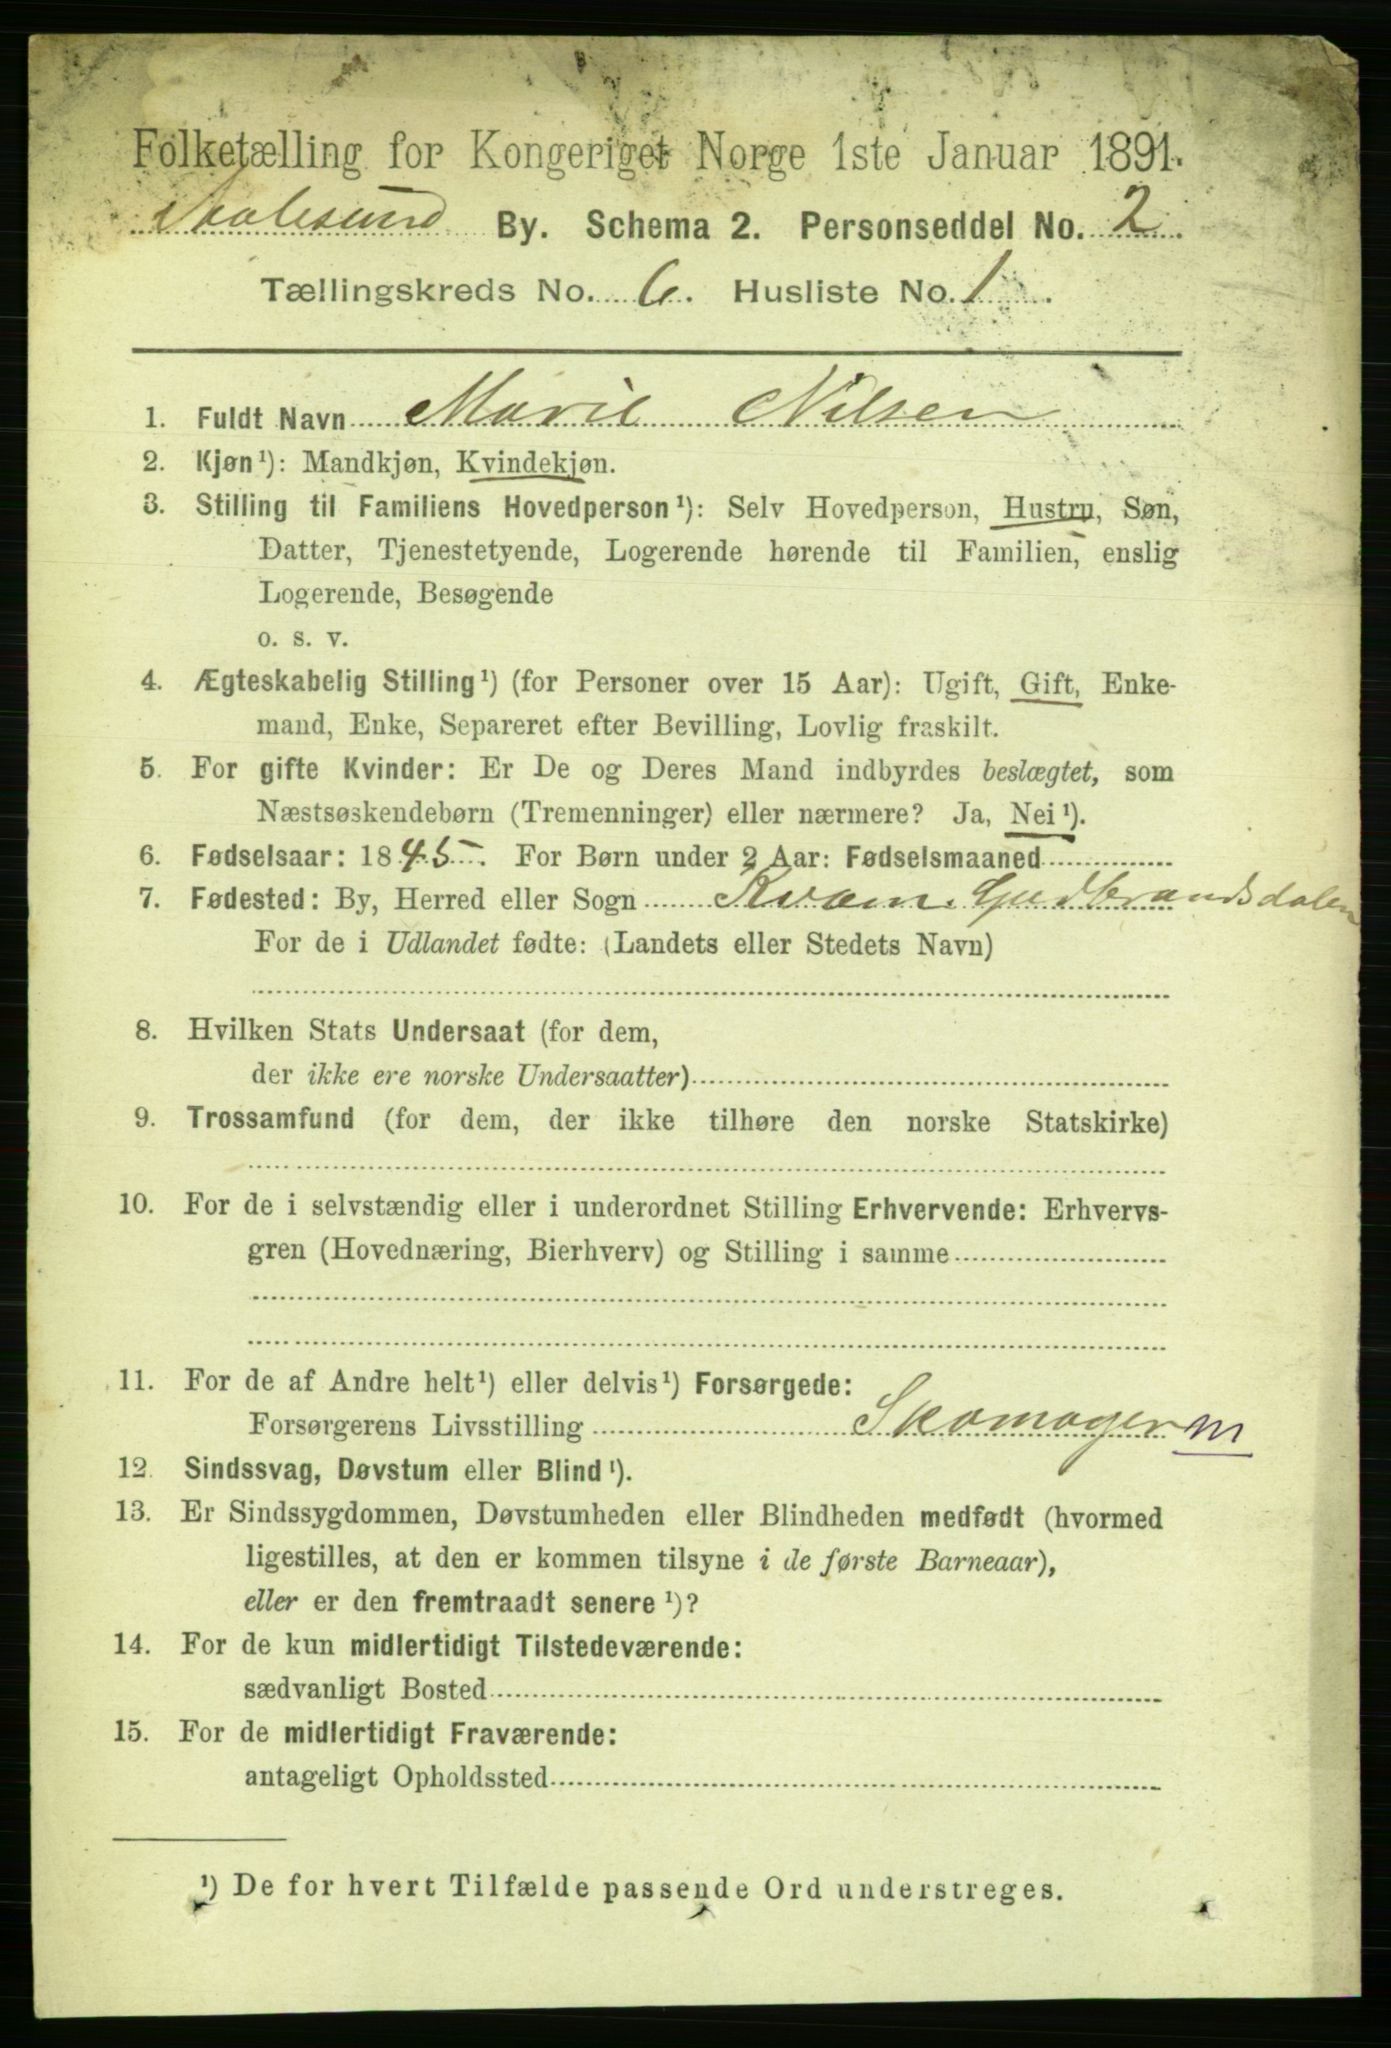 Folketælling for Kongeriget Norge 1ste Januar 1891.
Aalesund By. Schema 2. Personseddel No. 2.
Tællingskreds No. 6. Husliste No. 1.
1. Fuldt Navn Marie Nilsen
2. Kjøn¹): Mandkjøn, Kvindekjøn.
3. Stilling til Familiens Hovedperson¹): Selv Hovedperson, Hustru, Søn,
Datter, Tjenestetyende, Logerende hørende til Familien, enslig
Logerende, Besøgende
o. s. v.
4. Ægteskabelig Stilling¹) (for Personer over 15 Aar): Ugift, Gift, Enke-
mand, Enke, Separeret efter Bevilling, Lovlig fraskilt.
5. For gifte Kvinder: Er De og Deres Mand indbyrdes beslægtet, som
Næstsøskendebørn (Tremenninger) eller nærmere? Ja, Nei¹).
6. Fødselsaar: 1845. For Børn under 2 Aar: Fødselsmaaned
7. Fødested: By, Herred eller Sogn Kvam. Gudbrandsdalen
For de i Udlandet fødte: (Landets eller Stedets Navn)
8. Hvilken Stats Undersaat (for dem,
der ikke ere norske Undersaatter)
9. Trossamfund (for dem, der ikke tilhøre den norske Statskirke)
10. For de i selvstændig eller i underordnet Stilling Erhvervende: Erhvervs-
gren (Hovednæring, Bierhverv) og Stilling i samme
11. For de af Andre helt¹) eller delvis¹) Forsørgede:
Forsørgerens Livsstilling Skomager m
12. Sindssvag, Døvstum eller Blind¹).
13. Er Sindssygdommen, Døvstumheden eller Blindheden medfødt (hvormed
ligestilles, at den er kommen tilsyne i de første Barneaar),
eller er den fremtraadt senere¹)?
14. For de kun midlertidigt Tilstedeværende:
sædvanligt Bosted
15. For de midlertidigt Fraværende:
antageligt Opholdssted
¹) De for hvert Tilfælde passende Ord understreges.